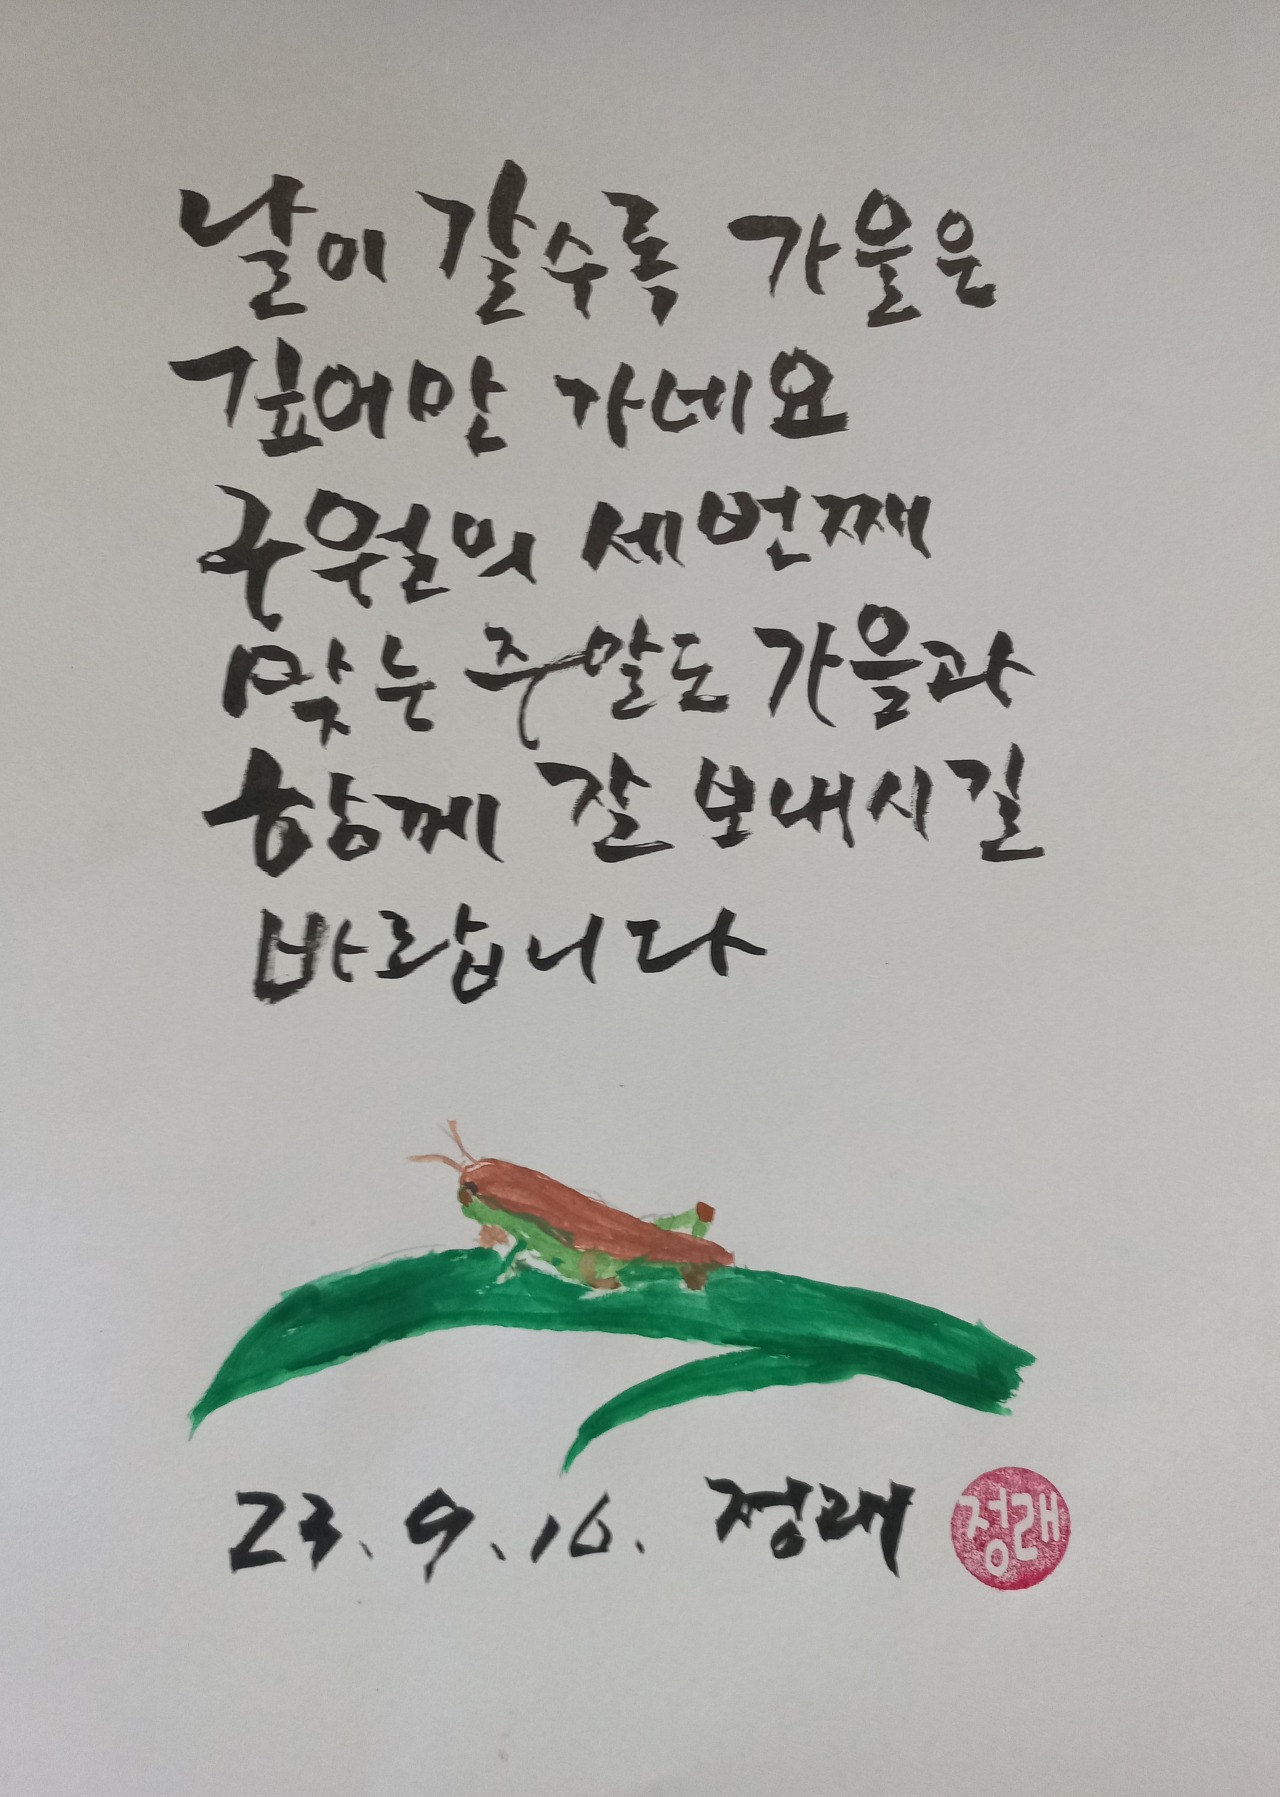 날이 갈수록 가을은
깊어만 가네요
구월의 세번째
맞는 주말도 가을과
함께 잘 보내시길
바랍니다
23. 9. 16. 정래
정래